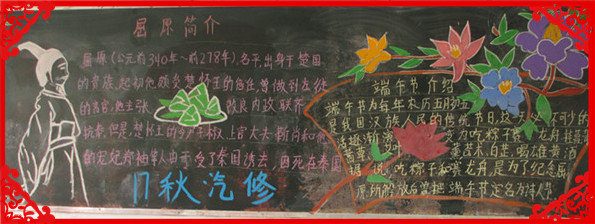 屈原简介
屈原(公元前340年~前278年)名平,出身于楚国
的贵族,起初他颇受楚怀王的信任,曾做到左徒
的高官,他主张 改良内政,联齐
抗秦,但是,楚怀王的令尹子椒、上官大夫靳尚和他
的宠妃郑袖等人由于受了秦国
17秋汽修
端午节介绍
端午节为每年农历五月初五
是我国汉族人民的传统节日,这 必不可少的
活动逐渐演 为吃粽子,赛龙舟,挂菖蒲
艾叶 薰苍术、白芷,喝雄黄酒
据说,吃粽子和赛龙舟,是为了纪念屈
原,所以解放后曾把端午节定名为诗人节